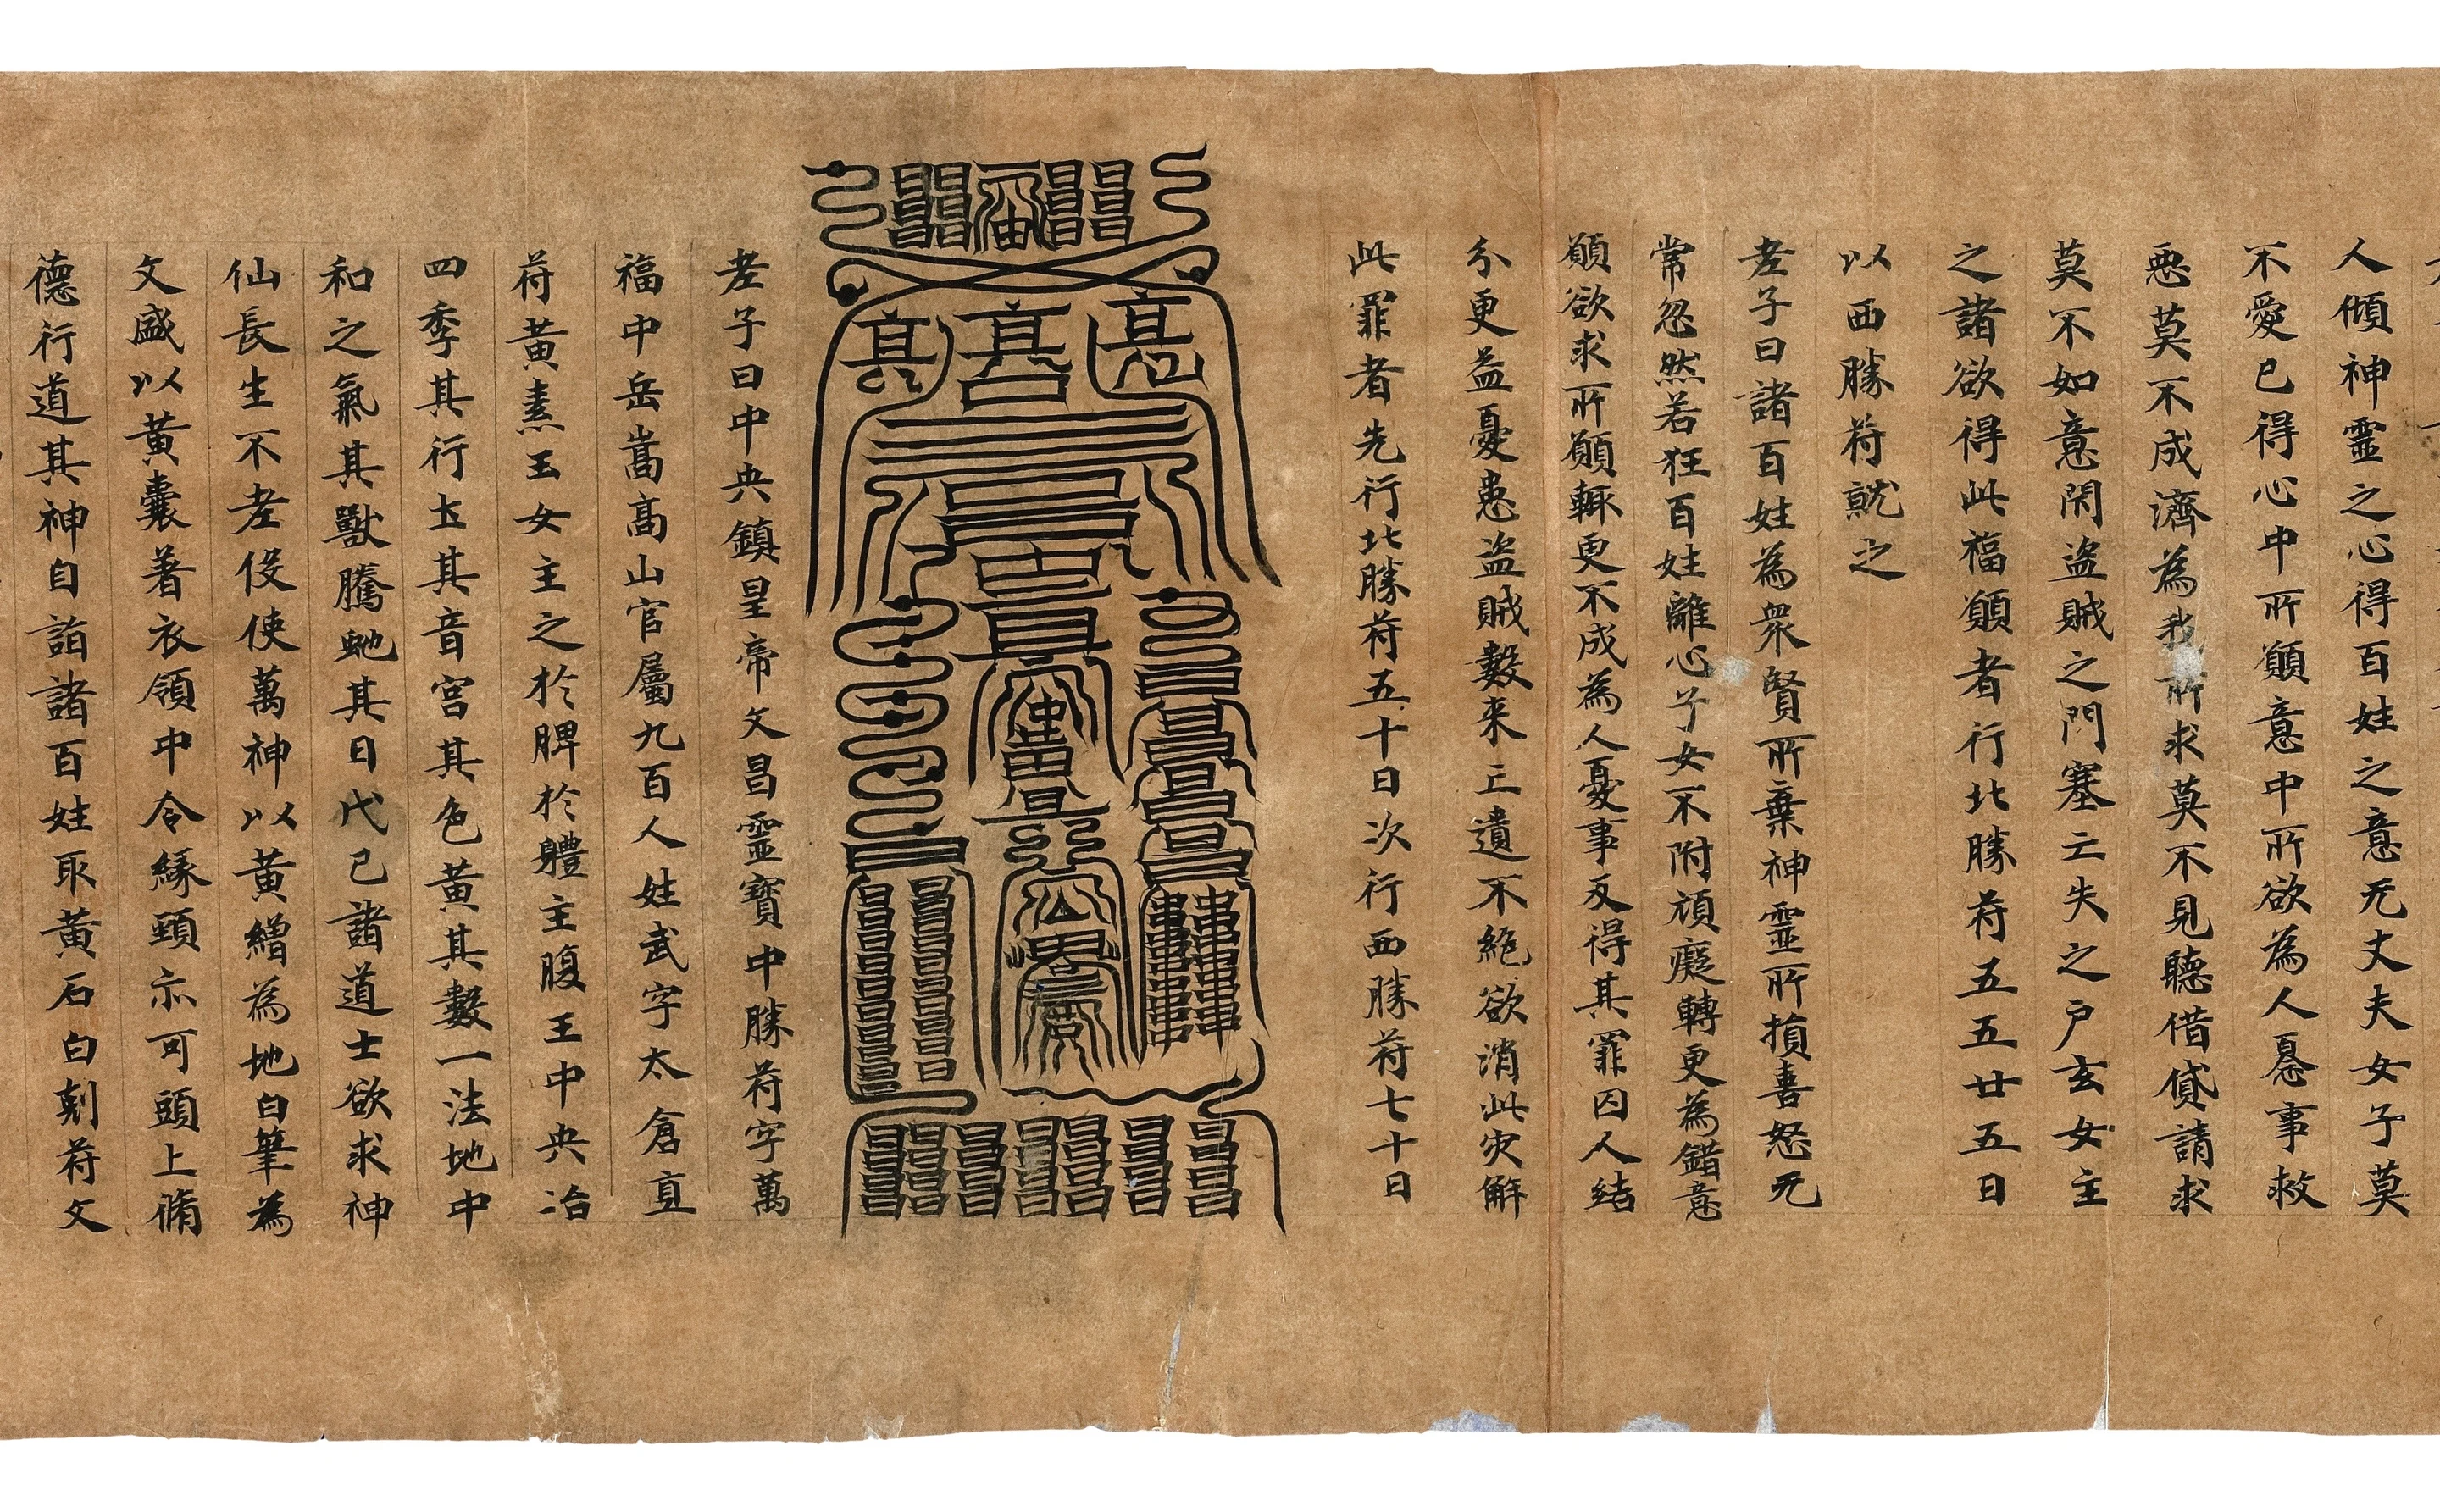 人傾神靈之心得百姓之意无丈夫女子莫
不愛已得心中所願意中所欲為人憂事救
惡莫不成濟為我所求莫不見聽借貸請求
莫不如意閇盜賊之門塞亡失之戶玄女主
之諸欲得此福願者行北勝苻五五廿五日
以西勝苻就之
老子曰諸百姓為衆賢所棄神靈所損喜怒无
常忽然若狂百姓離心子女不附頑癡轉更為錯意
願欲求所願輒更不成為人憂事反得其罪囚人結
分更益憂患盜賊數来亡遺不絶欲消此灾解
此罪者先行北勝苻五十日次行西勝苻七十日
老子曰中央鎮星帝文昌靈寶中勝苻字萬
福中岳嵩高山官屬九百人姓武字太倉直
苻黃素玉女主之於脾於體主腹王中央治
四季其行土其音宮其色黃其數一法地中
和之氣其獸騰虵其日戊己諸道士欲求神
仙長生不老役使萬神以黃繒為地白筆為
文盛以黃囊著衣領中令緣頸亦可頭上脩
德行道其神自詣諸百姓取黃石白刻苻文